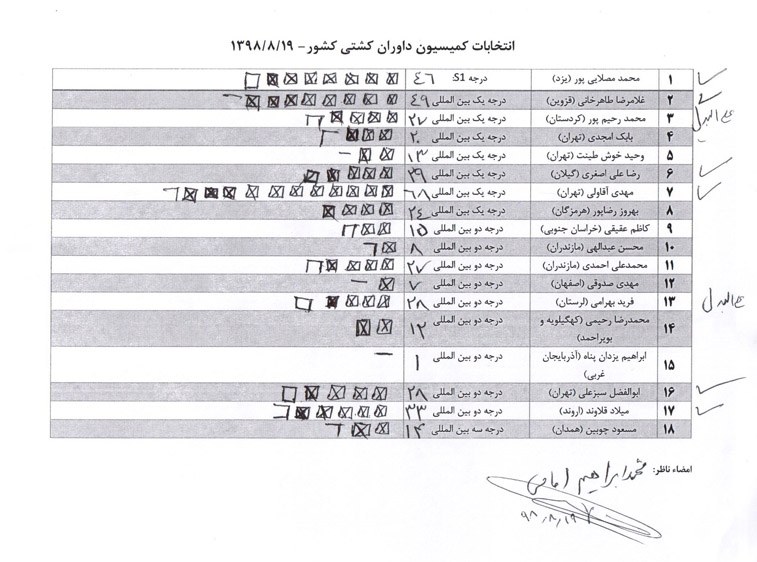 انتخابات کمیسیون داوران کشتی کشور – ۱۳۹۸/۸/۱۹
۱ محمد مصلایی پور (یزد) درجه S1 ۴۶
۲ غلامرضا طاهرخانی (قزوین) درجه یک بین المللی ۴۹
۳ محمد رحیم پور (کردستان) درجه یک بین المللی ۲۷
علی البدل
۴ بابک امجدی (تهران) درجه یک بین المللی ۲۰
۵ وحید خوش طینت (تهران) درجه یک بین المللی ۱۳
۶ رضا علی اصغری (گیلان) درجه یک بین المللی ۳۹
۷ مهدی آقاولی (تهران) درجه یک بین المللی ۶۸
۸ بهروز رضاپور (هرمزگان) درجه یک بین المللی ۲۴
۹ کاظم عقیقی (خراسان جنوبی) درجه دو بین المللی ۱۵
۱۰ محسن عبدالهی (مازندران) درجه دو بین المللی ۸
۱۱ محمدعلی احمدی (مازندران) درجه دو بین المللی ۲۷
۱۲ مهدی صدوقی (اصفهان) درجه دو بین المللی ۷
۱۳ فرید بهرامی (لرستان) درجه دو بین المللی ۲۸
علی البدل
۱۴ محمدرضا رحیمی (کهگیلویه و درجه دو بین المللی ۱۲
بویراحمد)
۱۵ ابراهیم یزدان پناه (آذربایجان درجه دو بین المللی ۱
غربی)
۱۶ ابوالفضل سبزعلی (تهران) درجه دو بین المللی ۲۸
۱۷ میلاد قلاوند (اروند) درجه دو بین المللی ۳۳
۱۸ مسعود چوبین (همدان) درجه سه بین المللی ۱۴
امضاء ناظر: محمدابراهیم امامی
۹۸/۸/۱۹